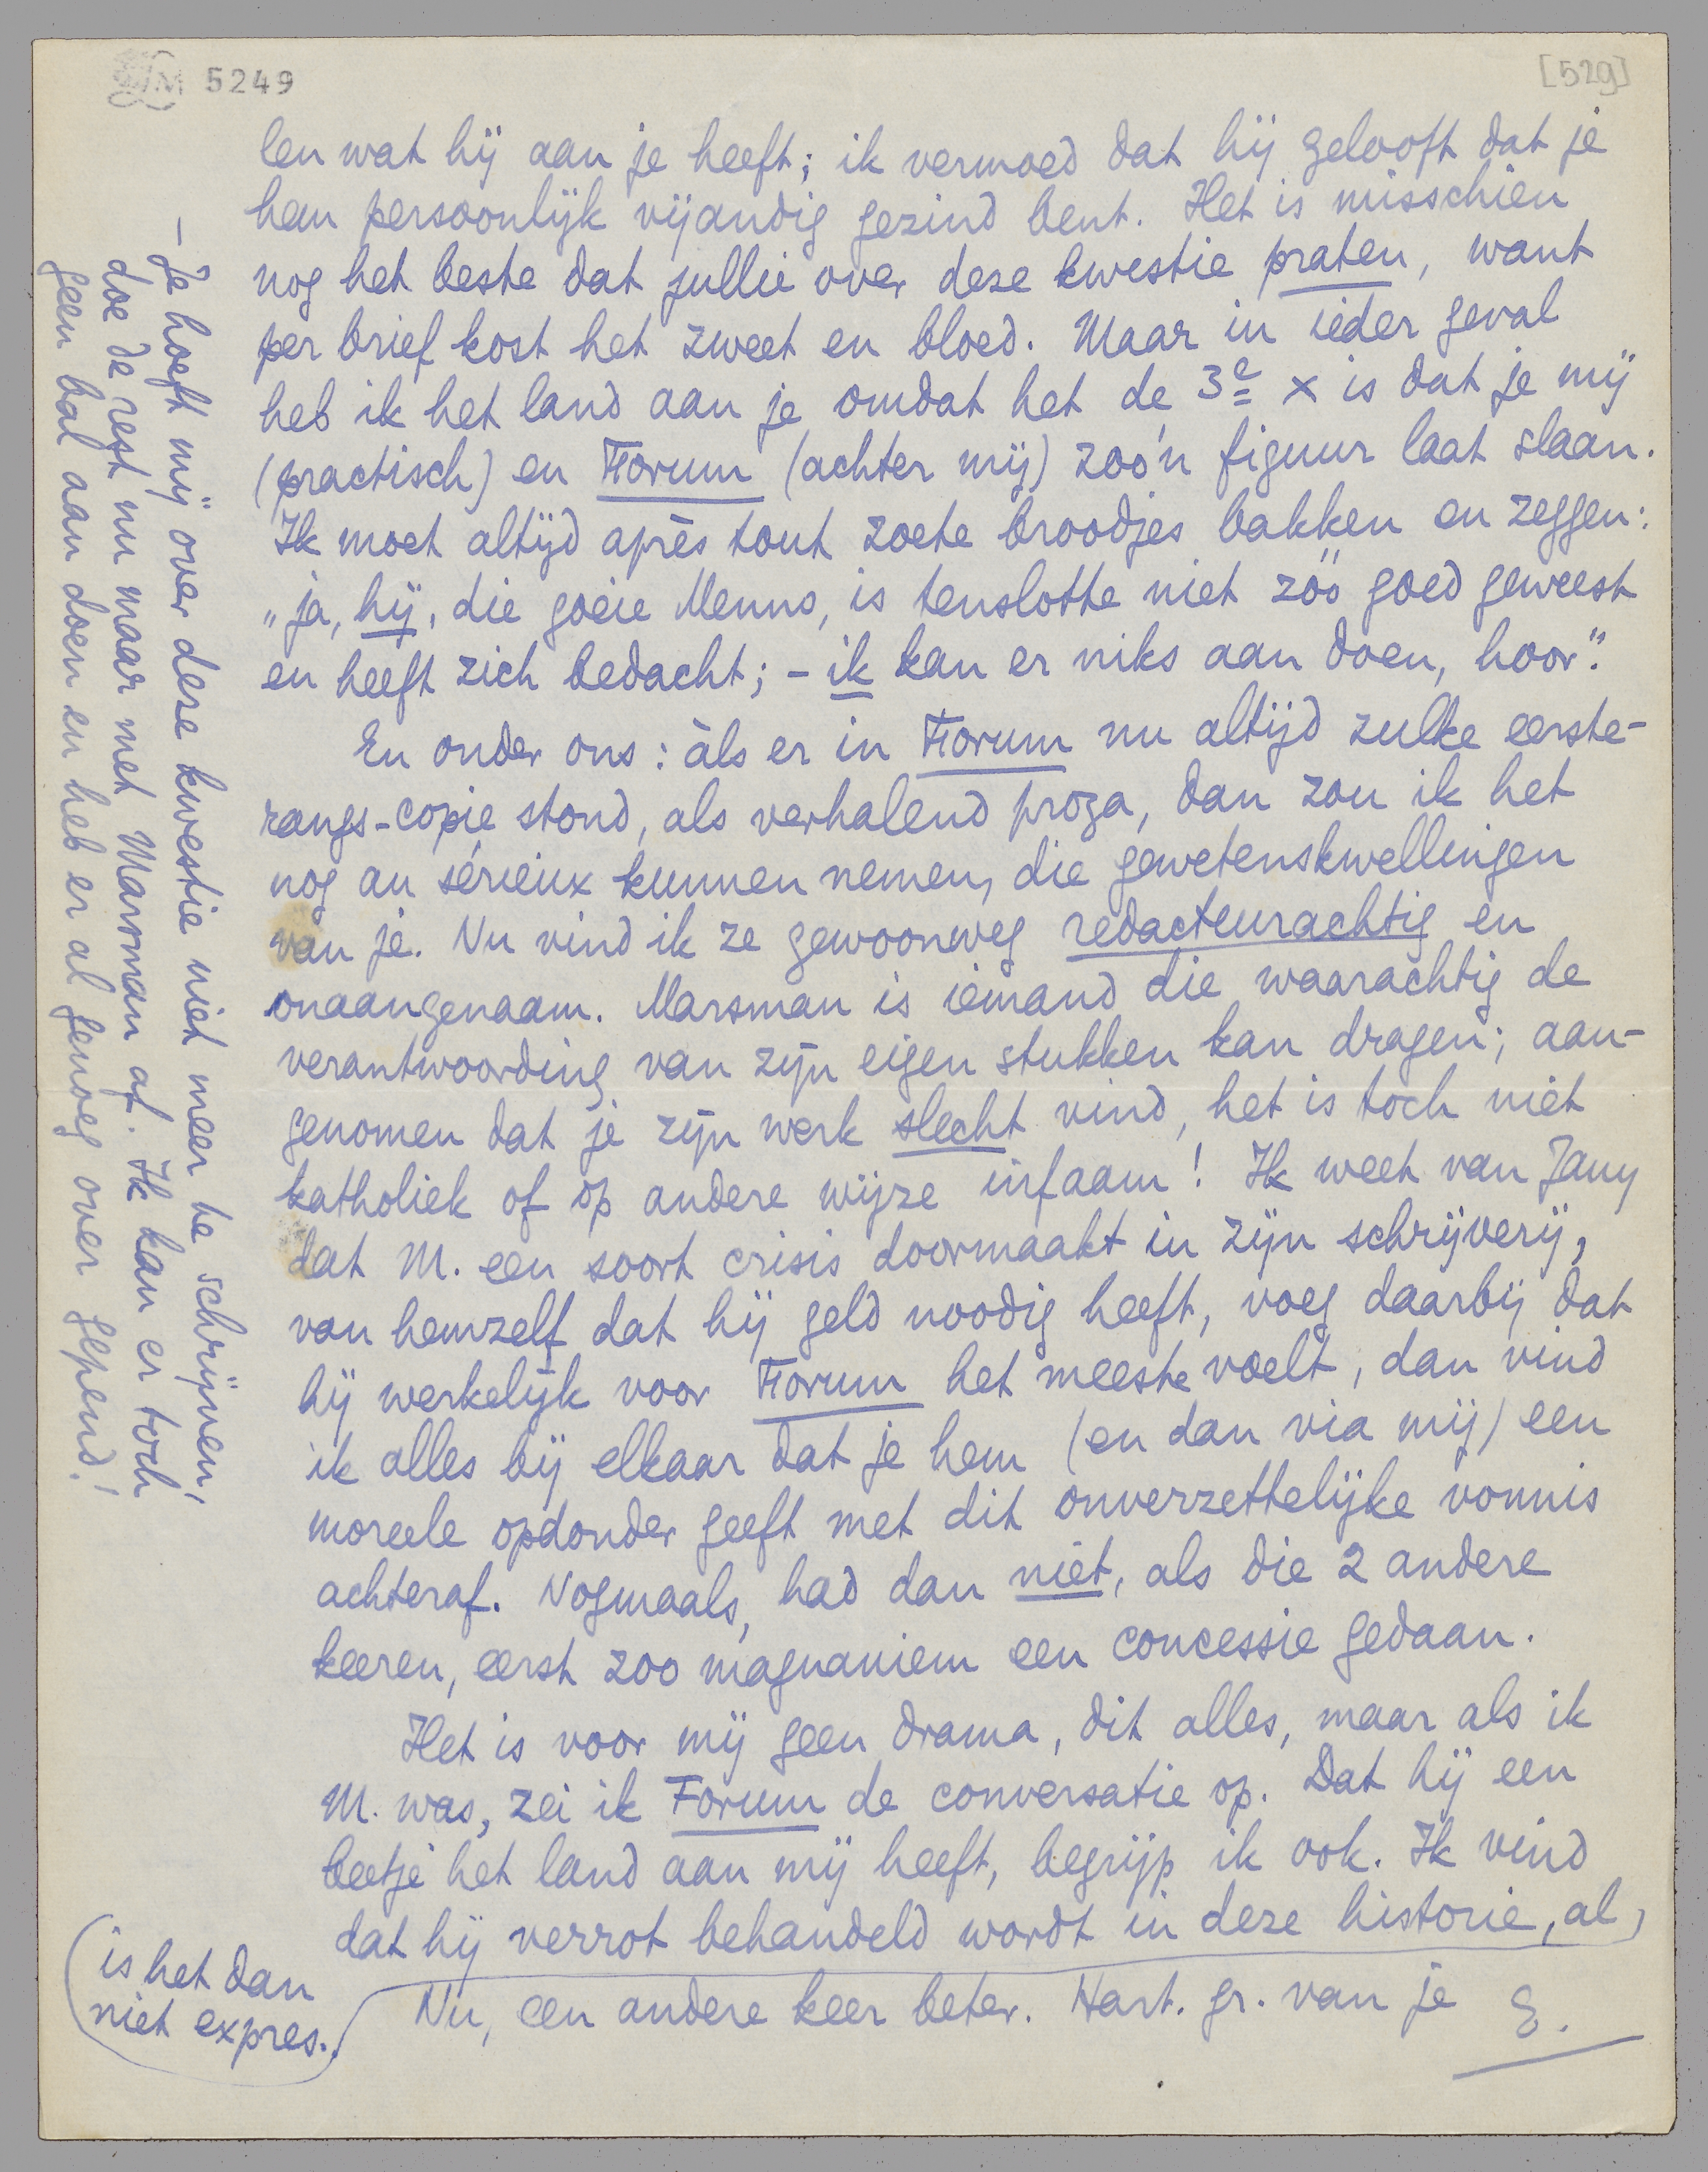 LM 5249
[529]
len wat hij aan je heeft; ik vermoed dat hij gelooft dat je
hem persoonlijk vijandig gezind bent. Het is misschien
nog het beste dat jullie over deze kwestie praten, want
per brief kost het zweet en bloed. Maar in ieder geval
heb ik het land aan je omdat het de 3e x is dat je mij
(practisch) en Forum (achter mij) zoo'n figuur laat slaan.
Ik moet altijd après tout zoete broodjes bakken en zeggen:
„ja, hij, die goeie Menno, is tenslotte niet zóó goed geweest
en heeft zich bedacht; - ik kan er niks aan doen, hoor."
En onder ons: àls er in Forum nu altijd zulke eerste-
rangs-copie stond, als verhalend proza, dan zou ik het
nog au sérieux kunnen nemen, die gewetenskwellingen
van je. Nu vind ik ze gewoonweg redacteurachtig en
onaangenaam. Marsman is iemand die waarachtig de
verantwoording van zijn eigen stukken kan dragen; aan-
genomen dat je zijn werk slecht vind, het is toch niet
katholiek of op andere wijze infaam! Ik weet van Jany
dat M. een soort crisis doormaakt in zijn schrijverij,
van hemzelf dat hij geld noodig heeft, voeg daarbij dat
hij werkelijk voor Forum het meeste voelt, dan vind
ik alles bij elkaar dat je hem (en dan via mij) een
moreele opdonder geeft met dit onverzettelijke vonnis
achteraf. Nogmaals, had dan niet, als die 2 andere
keeren, eerst zoo magnaniem een concessie gedaan.
Het is voor mij geen drama, dit alles, maar als ik
M. was, zei ik Forum de conversatie op. Dat hij een
beetje het land aan mij heeft, begrijp ik ook. Ik vind
dat hij verrot behandeld wordt in deze historie, al
is het dan
niet expres.
Nu, een andere keer beter. Hart. gr. van je E.
— Je hoeft mij over deze kwestie niet meer te schrijven,
doe de rest nu maar met Marsman af. Ik kan er toch
geen bal aan doen en heb er al genoeg over gepend!